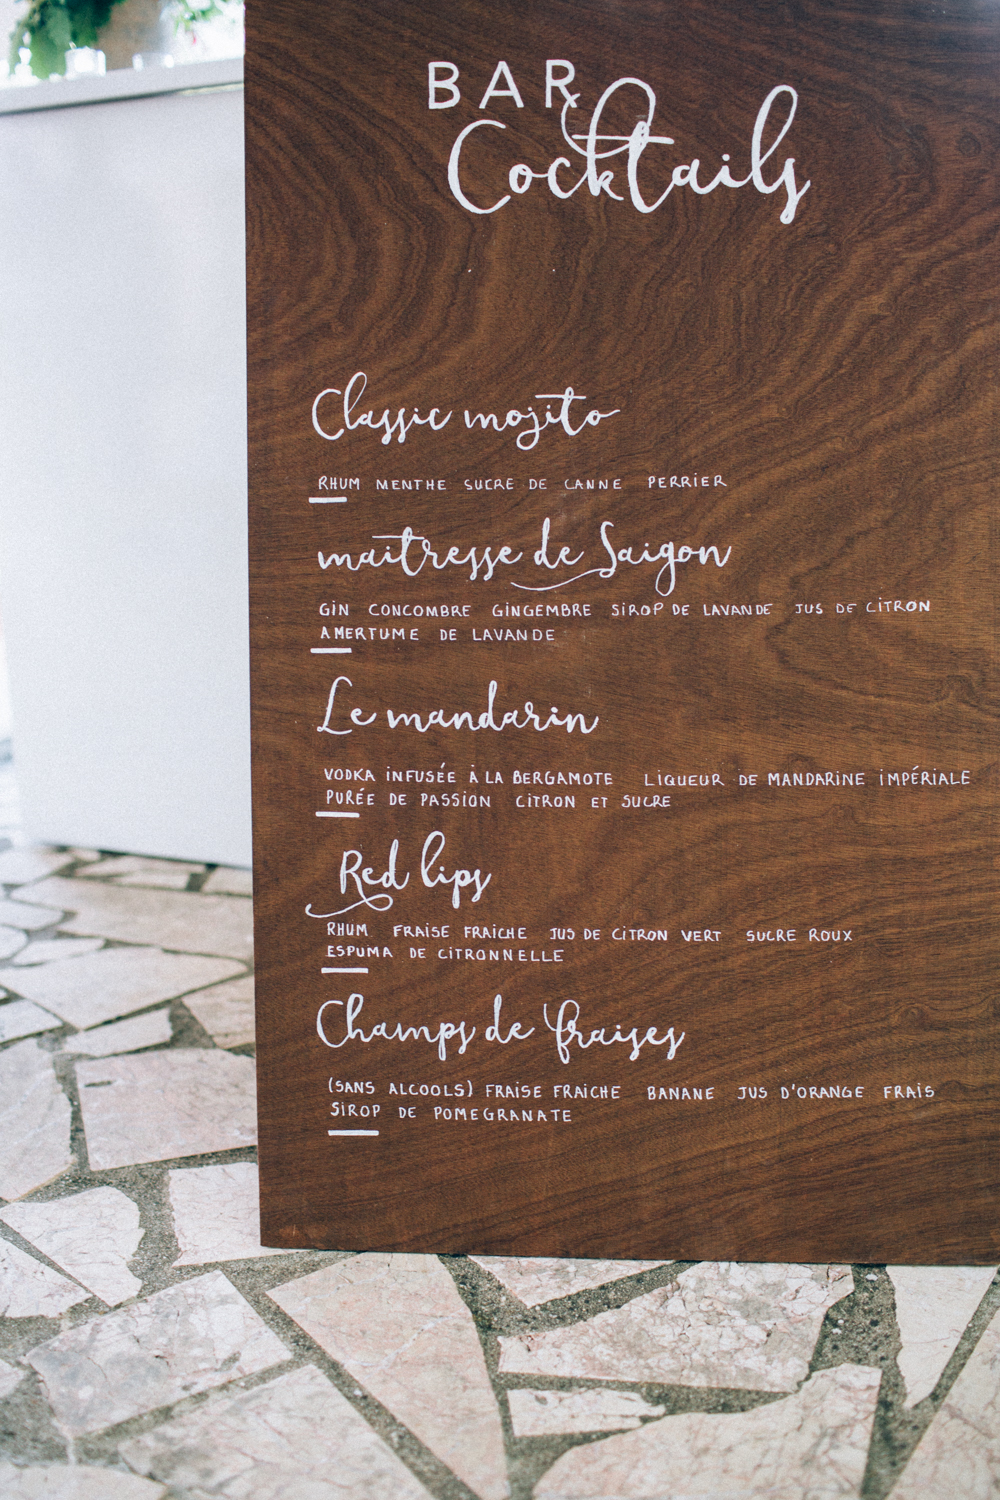 BAR
Cocktails
Classic mojito
RHUM MENTHE SUCRE DE CANNE PERRIER
maitresse de Saigon
GIN CONCOMBRE GINGEMBRE SIROP DE LAVANDE JUS DE CITRON
AMERTUME DE LAVANDE
Le mandarin
VODKA INFUSÉE À LA BERGAMOTE LIQUEUR DE MANDARINE IMPÉRIALE
PURÉE DE PASSION CITRON ET SUCRE
Red lips
RHUM FRAISE FRAICHE JUS DE CITRON VERT SUCRE ROUX
ESPUMA DE CITRONNELLE
Champs de fraises
(SANS ALCOOLS) FRAISE FRAICHE BANANE JUS D'ORANGE FRAIS
SIROP DE POMEGRANATE